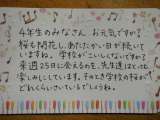 4年生のみなさん お元気ですか?
桜も開花し、あたたかい日が続いて
いますね。学校がこいしくないですか?
来週25日に会えるのを、先生達はとっても
楽しみにしています。そのとき学校の桜が
どれくらいさいているでしょうね。